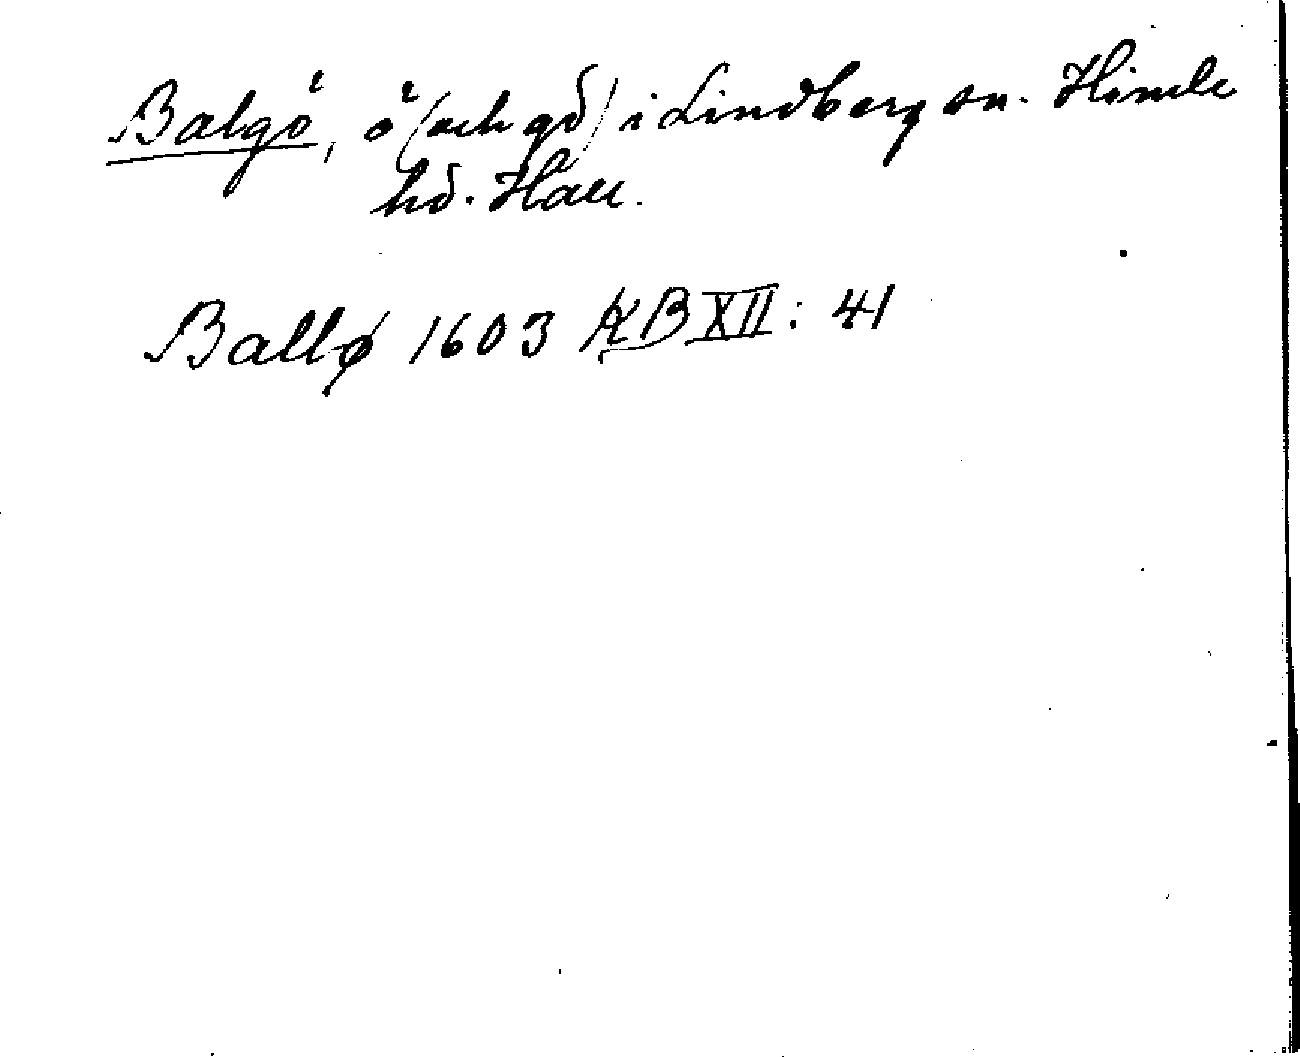 Balgö, ö (och gd) i Lindberg sn. Himle
hd. Hall.
Ballø 1603 KB XII: 41